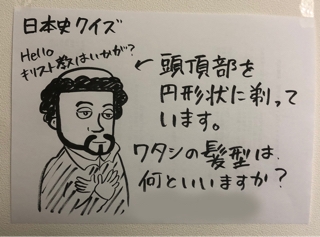 日本史クイズ
Hello
キリスト教はいかが?
← 頭頂部を
円形状に剃って
います。
ワタシの髪型は
何といいますか?